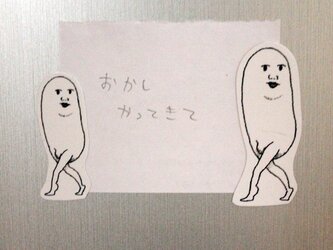 おかし
かってきて